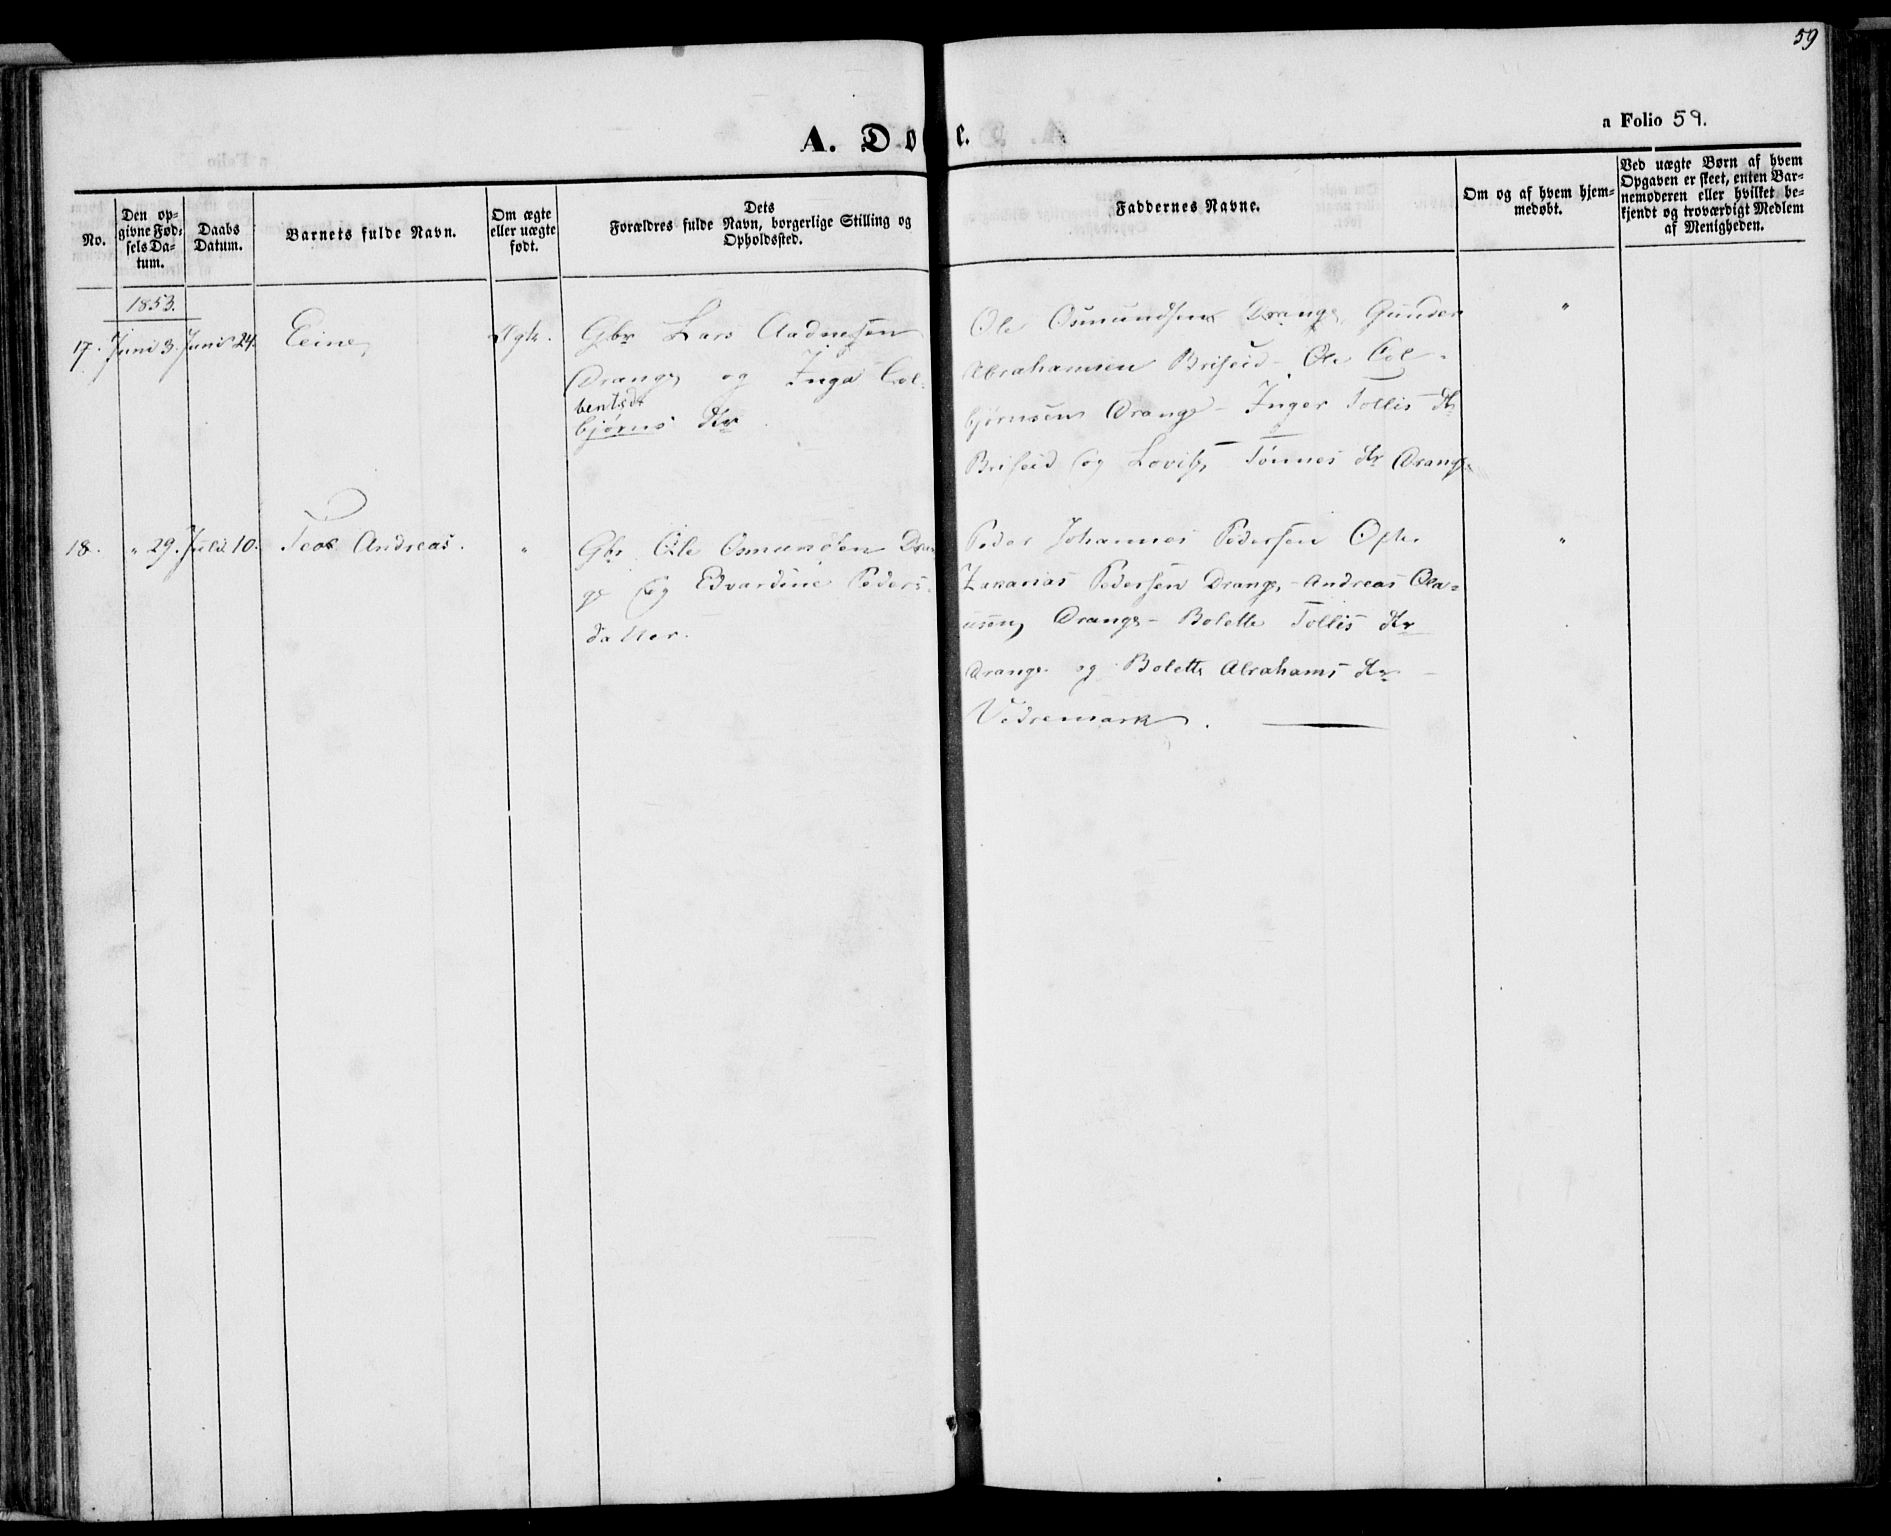 59
a Folio 59.
A. Dobte.
No.
Den op-
givne Fød-
sels Da-
tum.
Daabs
Datum.
Barnets fulde Navn.
Om ægte
eller uægte
født.
Dets
Forældres fulde Navn, borgerlige Stilling og
Opholdssted.
Faddernes Navne.
Om og af hvem hjem-
medøbt.
Ved uægte Børn af hvem
Opgaven er skeet, enten Bar-
nemoderen eller hvilket be-
kjendt og troværdigt Medlem
af Menigheden.
1853.
17. Juni 3. Juni 24. Eeine Ægte. Gbr Lars Aadnesen
Drange og Inga Col-
bentsdr
bjørns dtr
Ole Osmundsen Drange, Gunder "
Abrahamsen Briseid - Ole Col-
bjørnsen Drange - Inger Tollis dtr
Briseid og Lovise Tønnes dtr Drange
18. " 29. Juli 10. Teas Andreas. " Gbr Ole Osmundsen Dran
ge og Edvardine Peders-
datter.
Peder Johannes Pedersen Opte. "
Zakarias Pedersen Drange, - Andreas Ola-
usen, Drange - Bolette Tollis dtr
Drange og Bolette Abrahams dtr -
Vedremark.